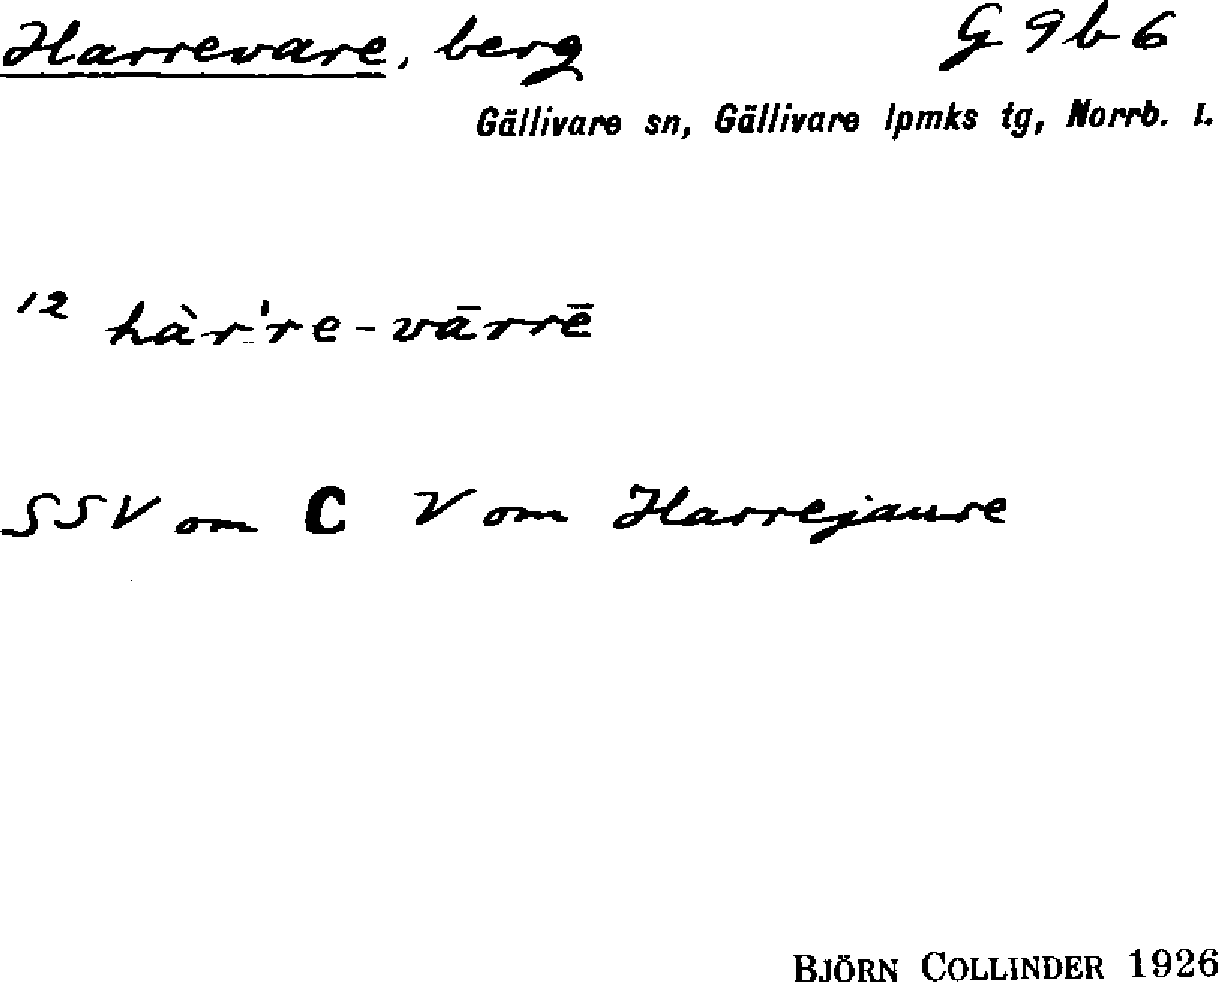 Harrevare, berg G 9 b 6
Gällivare sn, Gällivare lpmks tg, Norrb. l.
12 hàr're-vārrē
SSV om C V om Harrejaure
BJÖRN COLLINDER 1926